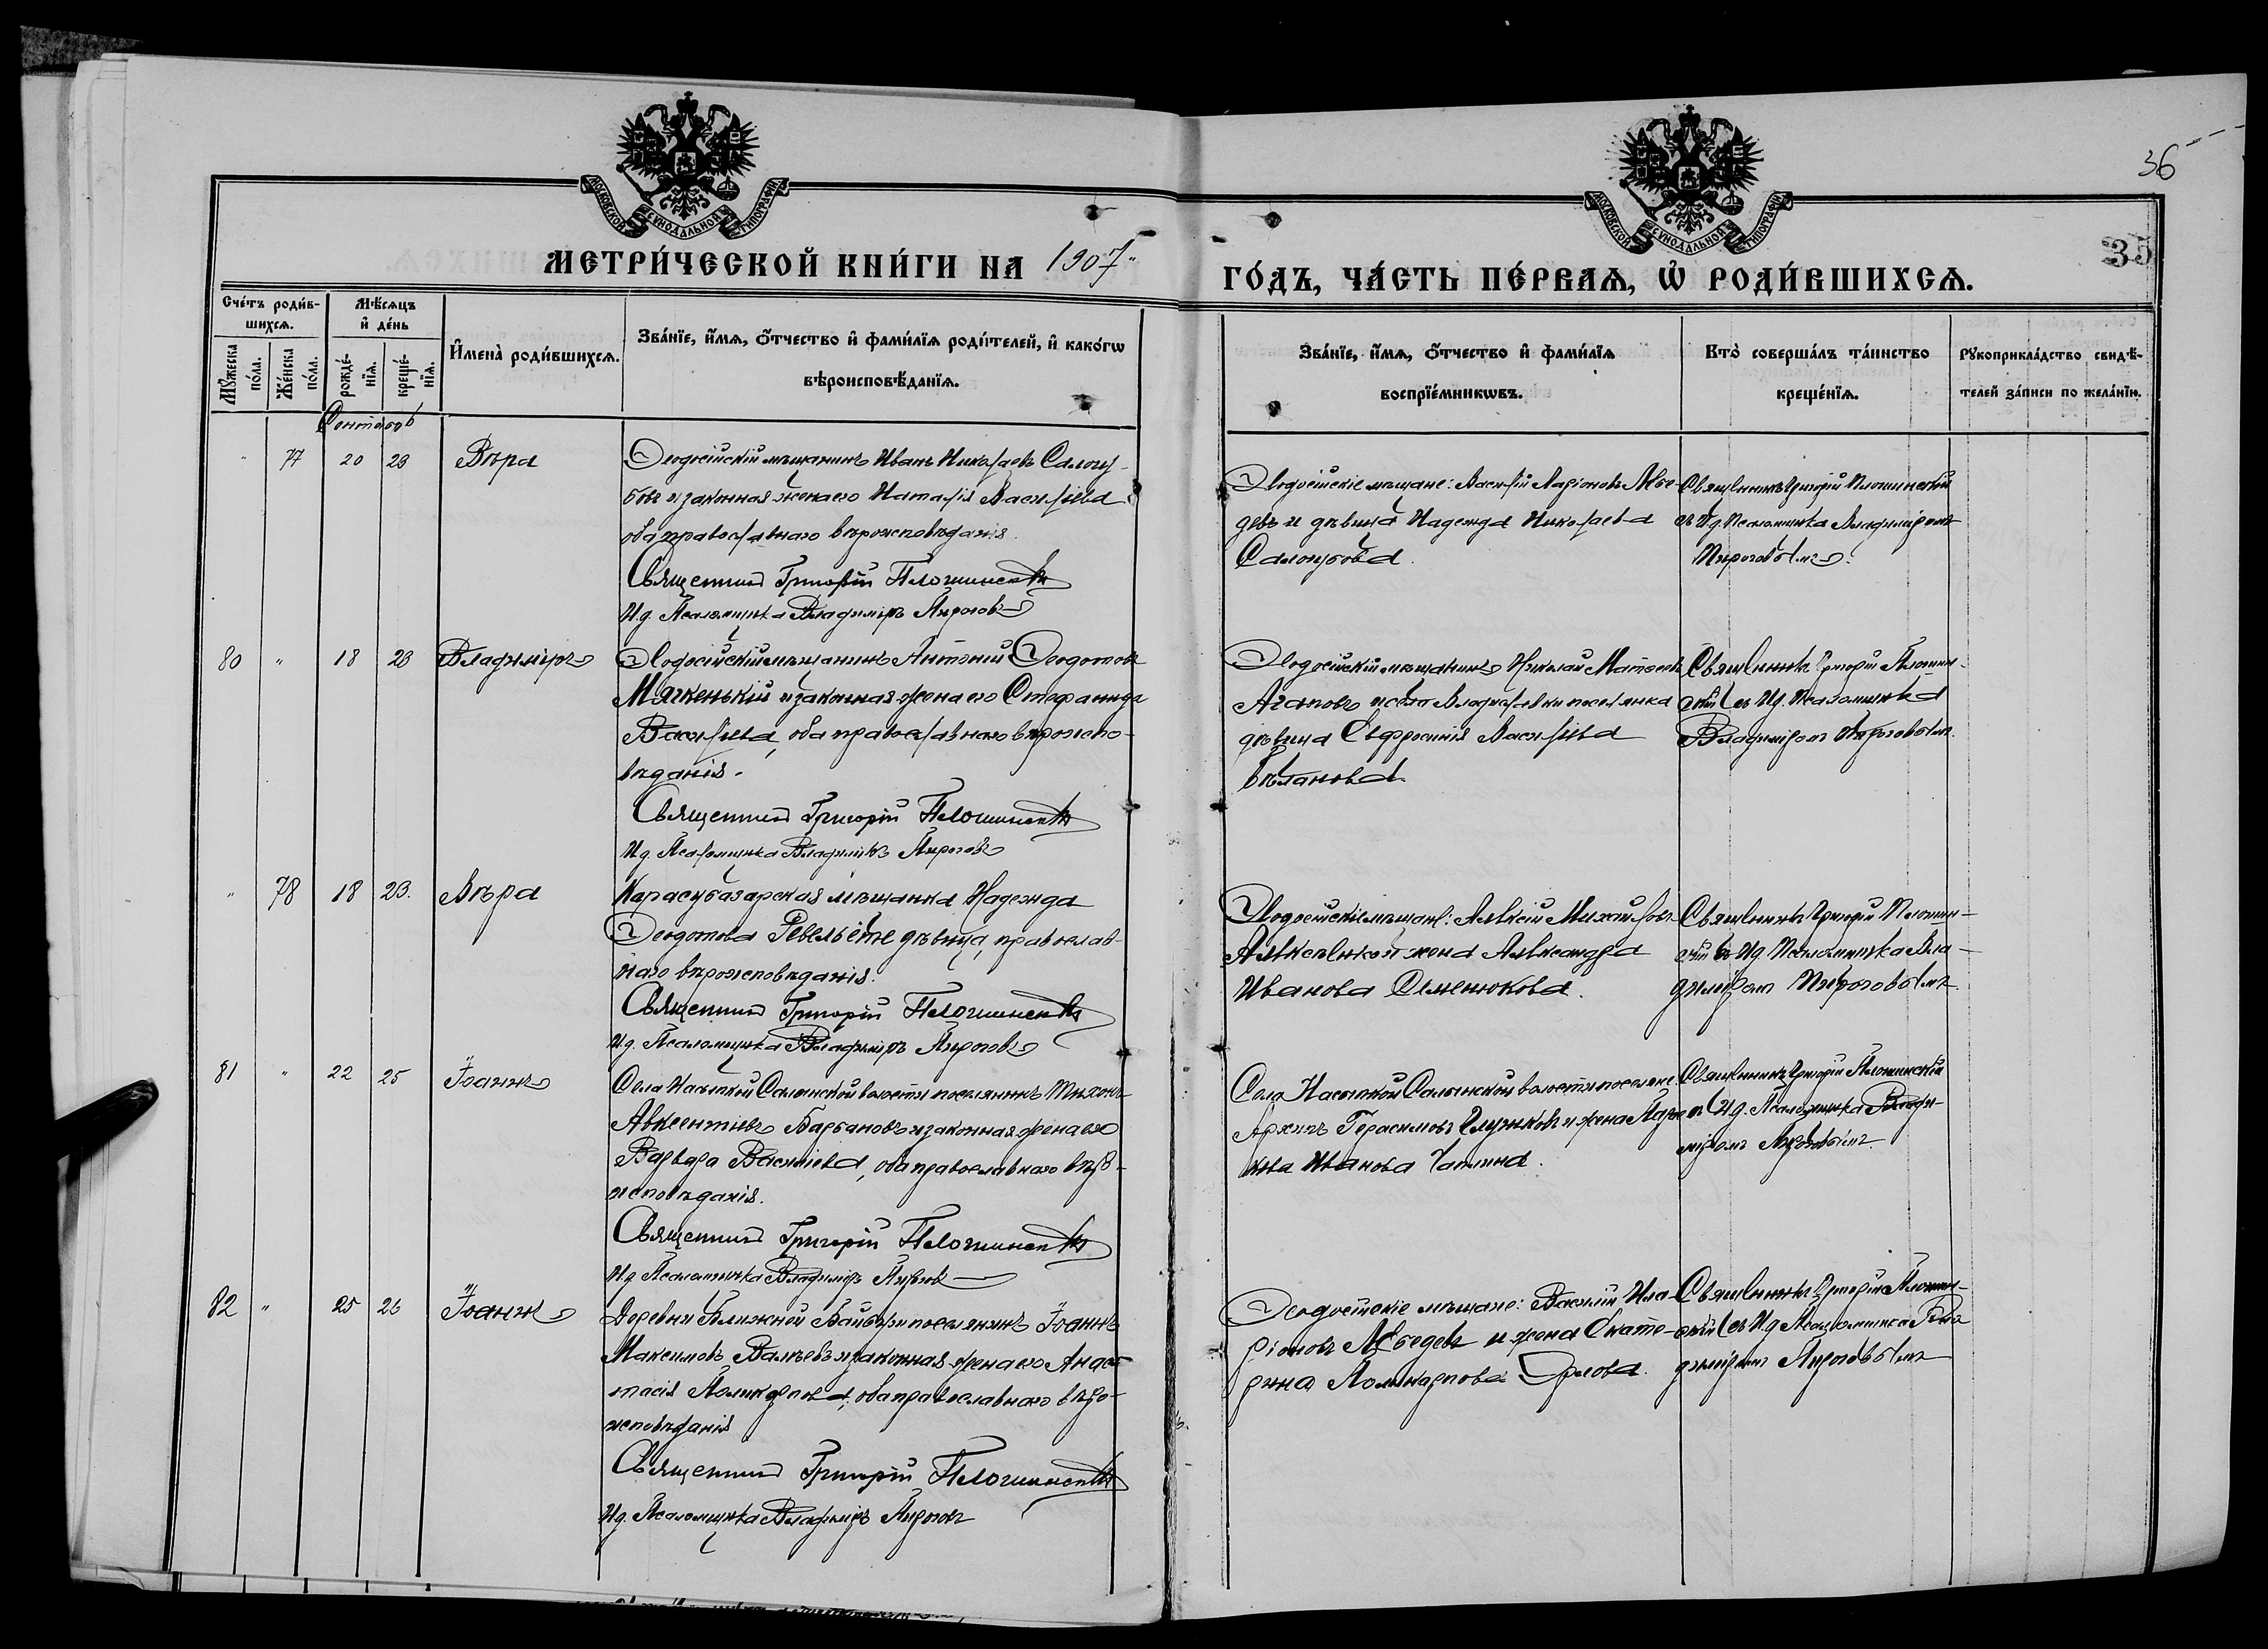 36
35
МОСКОВСКОЙ СѴНОДАЛЬНОЙ ТИПОГРАФІИ
МОСКОВСКОЙ СѴНОДАЛЬНОЙ ТИПОГРАФІИ
МЕТРИ́ЧЕСКОЙ КНИ́ГИ НА 1907
ГО́ДЪ, ЧА́СТЬ ПЕ́РВАѦ, Ѡ҆ РОДИ́ВШИХСѦ.
Сче́тъ роди́в-
шихсѧ.
Мѣ́сѧцъ
и҆ де́нь
Мꙋ́жеска по́ла.
Же́нска по́ла.
рожде́-
нїѧ.
креще́-
нїѧ.
И҆мена̀ роди́вшихсѧ.
Зва́нїе, и҆́мѧ, ѻ҆́тчество и҆ фами́лїѧ роди́телей, и҆ како́гѡ
вѣроисповѣ́данїѧ.
Зва́нїе, и҆́мѧ, ѻ҆́тчество и҆ фами́лїѧ
воспрїе́мникѡвъ.
Кто̀ соверша́лъ та́инство
креще́нїѧ.
Рꙋкоприкла́дство свидѣ́-
телей за́писи по жела́нїю.
Сентябрь
" 77 20 23 Вѣра
Ѳеодосійскій мѣщанинъ Иванъ Николаевъ Салогу-
бовъ и законная жена его Наталія Васильева
оба православнаго вѣроисповѣданія.
Священникъ Григорій
И.д. Псаломщика Владиміръ Пироговъ
Ѳеодосійскіе мѣщане: Василій Ларіоновъ Лебе-
девъ и дѣвица Надежда Николаева
Салогубова.
Священникъ Григорій
съ И.д. Псаломщика Владиміромъ
Пироговымъ.
80 " 18 23 Владиміръ
Ѳеодосійскій мѣщанинъ Антоній Ѳеодотовъ
Мягкенькій и законная жена его Стефанида
Васильева, оба православнаго вѣроиспо-
вѣданія.
Священникъ Григорій
И.д. Псаломщика Владиміръ Пироговъ
Ѳеодосійскій мѣщанинъ Николай Матвеевъ
Агаповъ и села Владиславки поселянка
дѣвица Евфросинія Васильева
Бѣланова.
Священникъ Григорій
съ И.д. Псаломщика
Владиміромъ Пироговымъ.
" 78 18 23. Вѣра
Карасубазарская мѣщанка Надежда
Ѳеодотова дѣвица, православ-
наго вѣроисповѣданія.
Священникъ Григорій
И.д. Псаломщика Владиміръ Пироговъ
Ѳеодосійскіе мѣщане: Алексій Михайловъ
и жена Александра
Иванова Семенюкова.
Священникъ Григорій
съ И.д. Псаломщика Вла-
диміромъ Пироговымъ.
81 " 22 25 Іоаннъ
Села Насыпкой Салынской волости поселянинъ Тихонъ
Авксентіевъ Барбановъ и законная жена его
Варвара Василіева, оба православнаго вѣро-
исповѣданія.
Священникъ Григорій
И.д. Псаломщика Владиміръ Пироговъ
Села Насыпкой Салынской волости поселяне
Архипъ Герасимовъ и жена
Иванова
Священникъ Григорій
съ И.д. Псаломщика Влади-
міромъ Пироговымъ
82 " 25 26 Іоаннъ
Деревни Ближней Байбуги поселянинъ Іоаннъ
Максимовъ Валяевъ и законная жена его Анас-
тасія Поликарпова, оба православнаго вѣро-
исповѣданія
Священникъ Григорій
И.д. Псаломщика Владиміръ Пироговъ
Ѳеодосійскіе мѣщане: Василій Ила-
ріоновъ Лебедевъ и жена Екате-
рина Поликарпова Орлова.
Священникъ Григорій
съ И.д. Псаломщика Вла-
диміромъ Пироговымъ